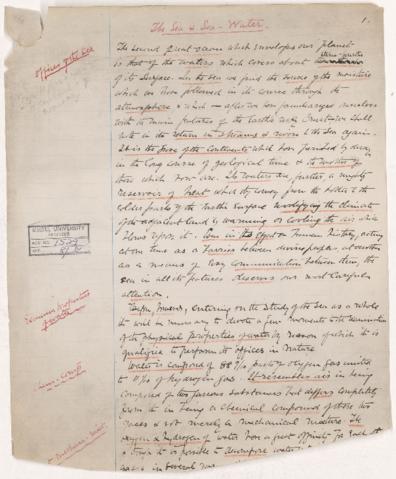 The Sea & Sea-Water.
1.
Offices of the Sea
The second great ocean which envelopes our planet
is that of the waters which covers about three-fourths
of its surface. In the sea we find the source of the moisture
which we have followed in its course through the
atmosphere & which after we have familiarized ourselves
with the main features of the Earth's we shall
in its return in streams & rivers to the Sea again.
It is the of the Continents which have perished by decay
in the long course of geological time & the mother of
those which now are. Its waters are, further a mighty
reservoir of heat which they convey from the hotter to the
colder parts of the Earth's surface modifying the climate
of the adjacent land by warming or cooling the air which
blows upon it. in its effect on human history, acting
at one time as a barrier between diverse peoples at another
as a means of easy communication between them, the
sea in all its features deserves our most careful
attention.
Before, however, entering on the study of the Sea as a whole
it will be necessary to devote a few moments to the examination
of the physical properties of water by reason of which it is
qualified to perform its offices in Nature
Water is composed of 88 8/9 parts of oxygen gas united
to 11 1/9 of hydrogen gas. It resembles air in being
composed of two gaseous substances but differs completely
from it in being a chemical compound of those two
gases & not merely a mechanical mixture. The
oxygen & hydrogen of water have a great affinity for each other
& though it is possible to decompose water
in several
UNIVERSITY
ARCHIVES
properties
of water
Chem: Comp